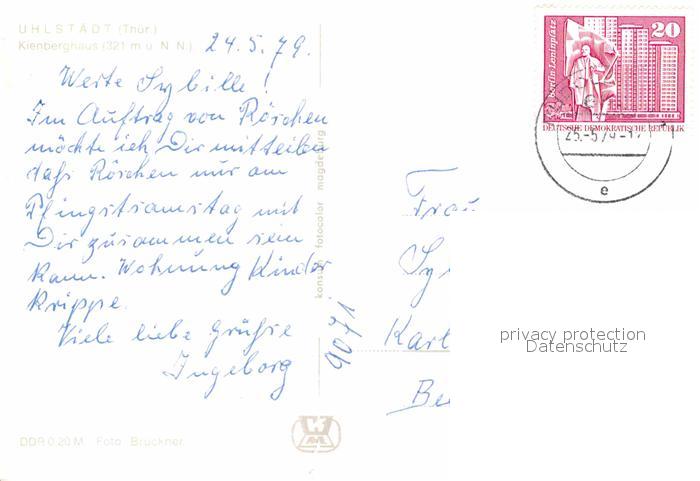 UHLSTÄDT (Thür.)
Kienberghaus (321 m ü. N. N.)
24.5.79.
Werte Sybille!
Im Auftrag von Röschen
möchte ich Dir mitteilen
daß Röschen nur am
Pfingstsamstag mit
Dir zusammen sein
kann. Wohnung Kinder
krippe.
Viele liebe Grüße
Ingeborg
DDR 0.20 M Foto: Brückner
konsum fotocolor magdeburg
9071
20
berlin-Leninplatz
DEUTSCHE DEMOKRATISCHE REPUBLIK
25.-5.79-17
e
Frau
Sy
Karl
Be
privacy protection
Datenschutz